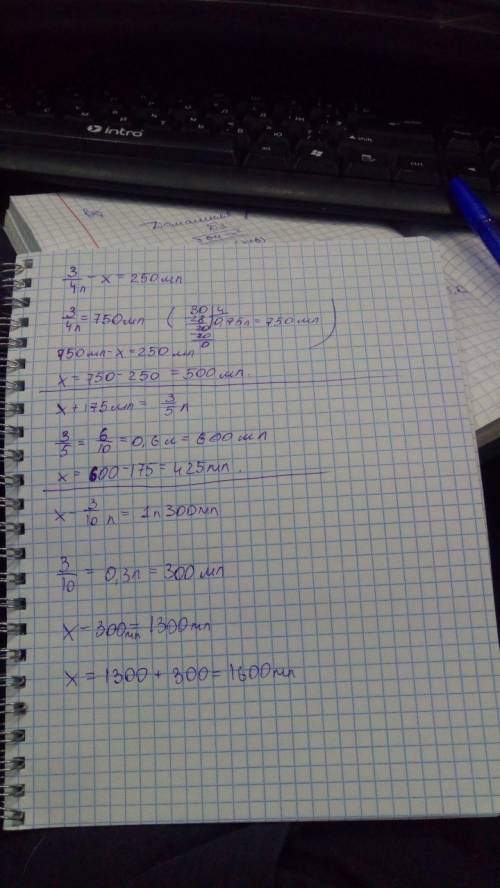 intro
Домашняя
3/4л - x = 250мл
3/4л = 750мл ( 30 | 4
28 0,75л = 750мл )
20
20
0
750мл - x = 250мл
x = 750 - 250 = 500мл.
x + 175мл = 3/5 л
3/5 = 6/10 = 0,6л = 600мл
x = 600 - 175 = 425мл.
x - 3/10 л = 1л 300мл
3/10 = 0,3л = 300мл
x - 300мл = 1300мл
x = 1300 + 300 = 1600мл